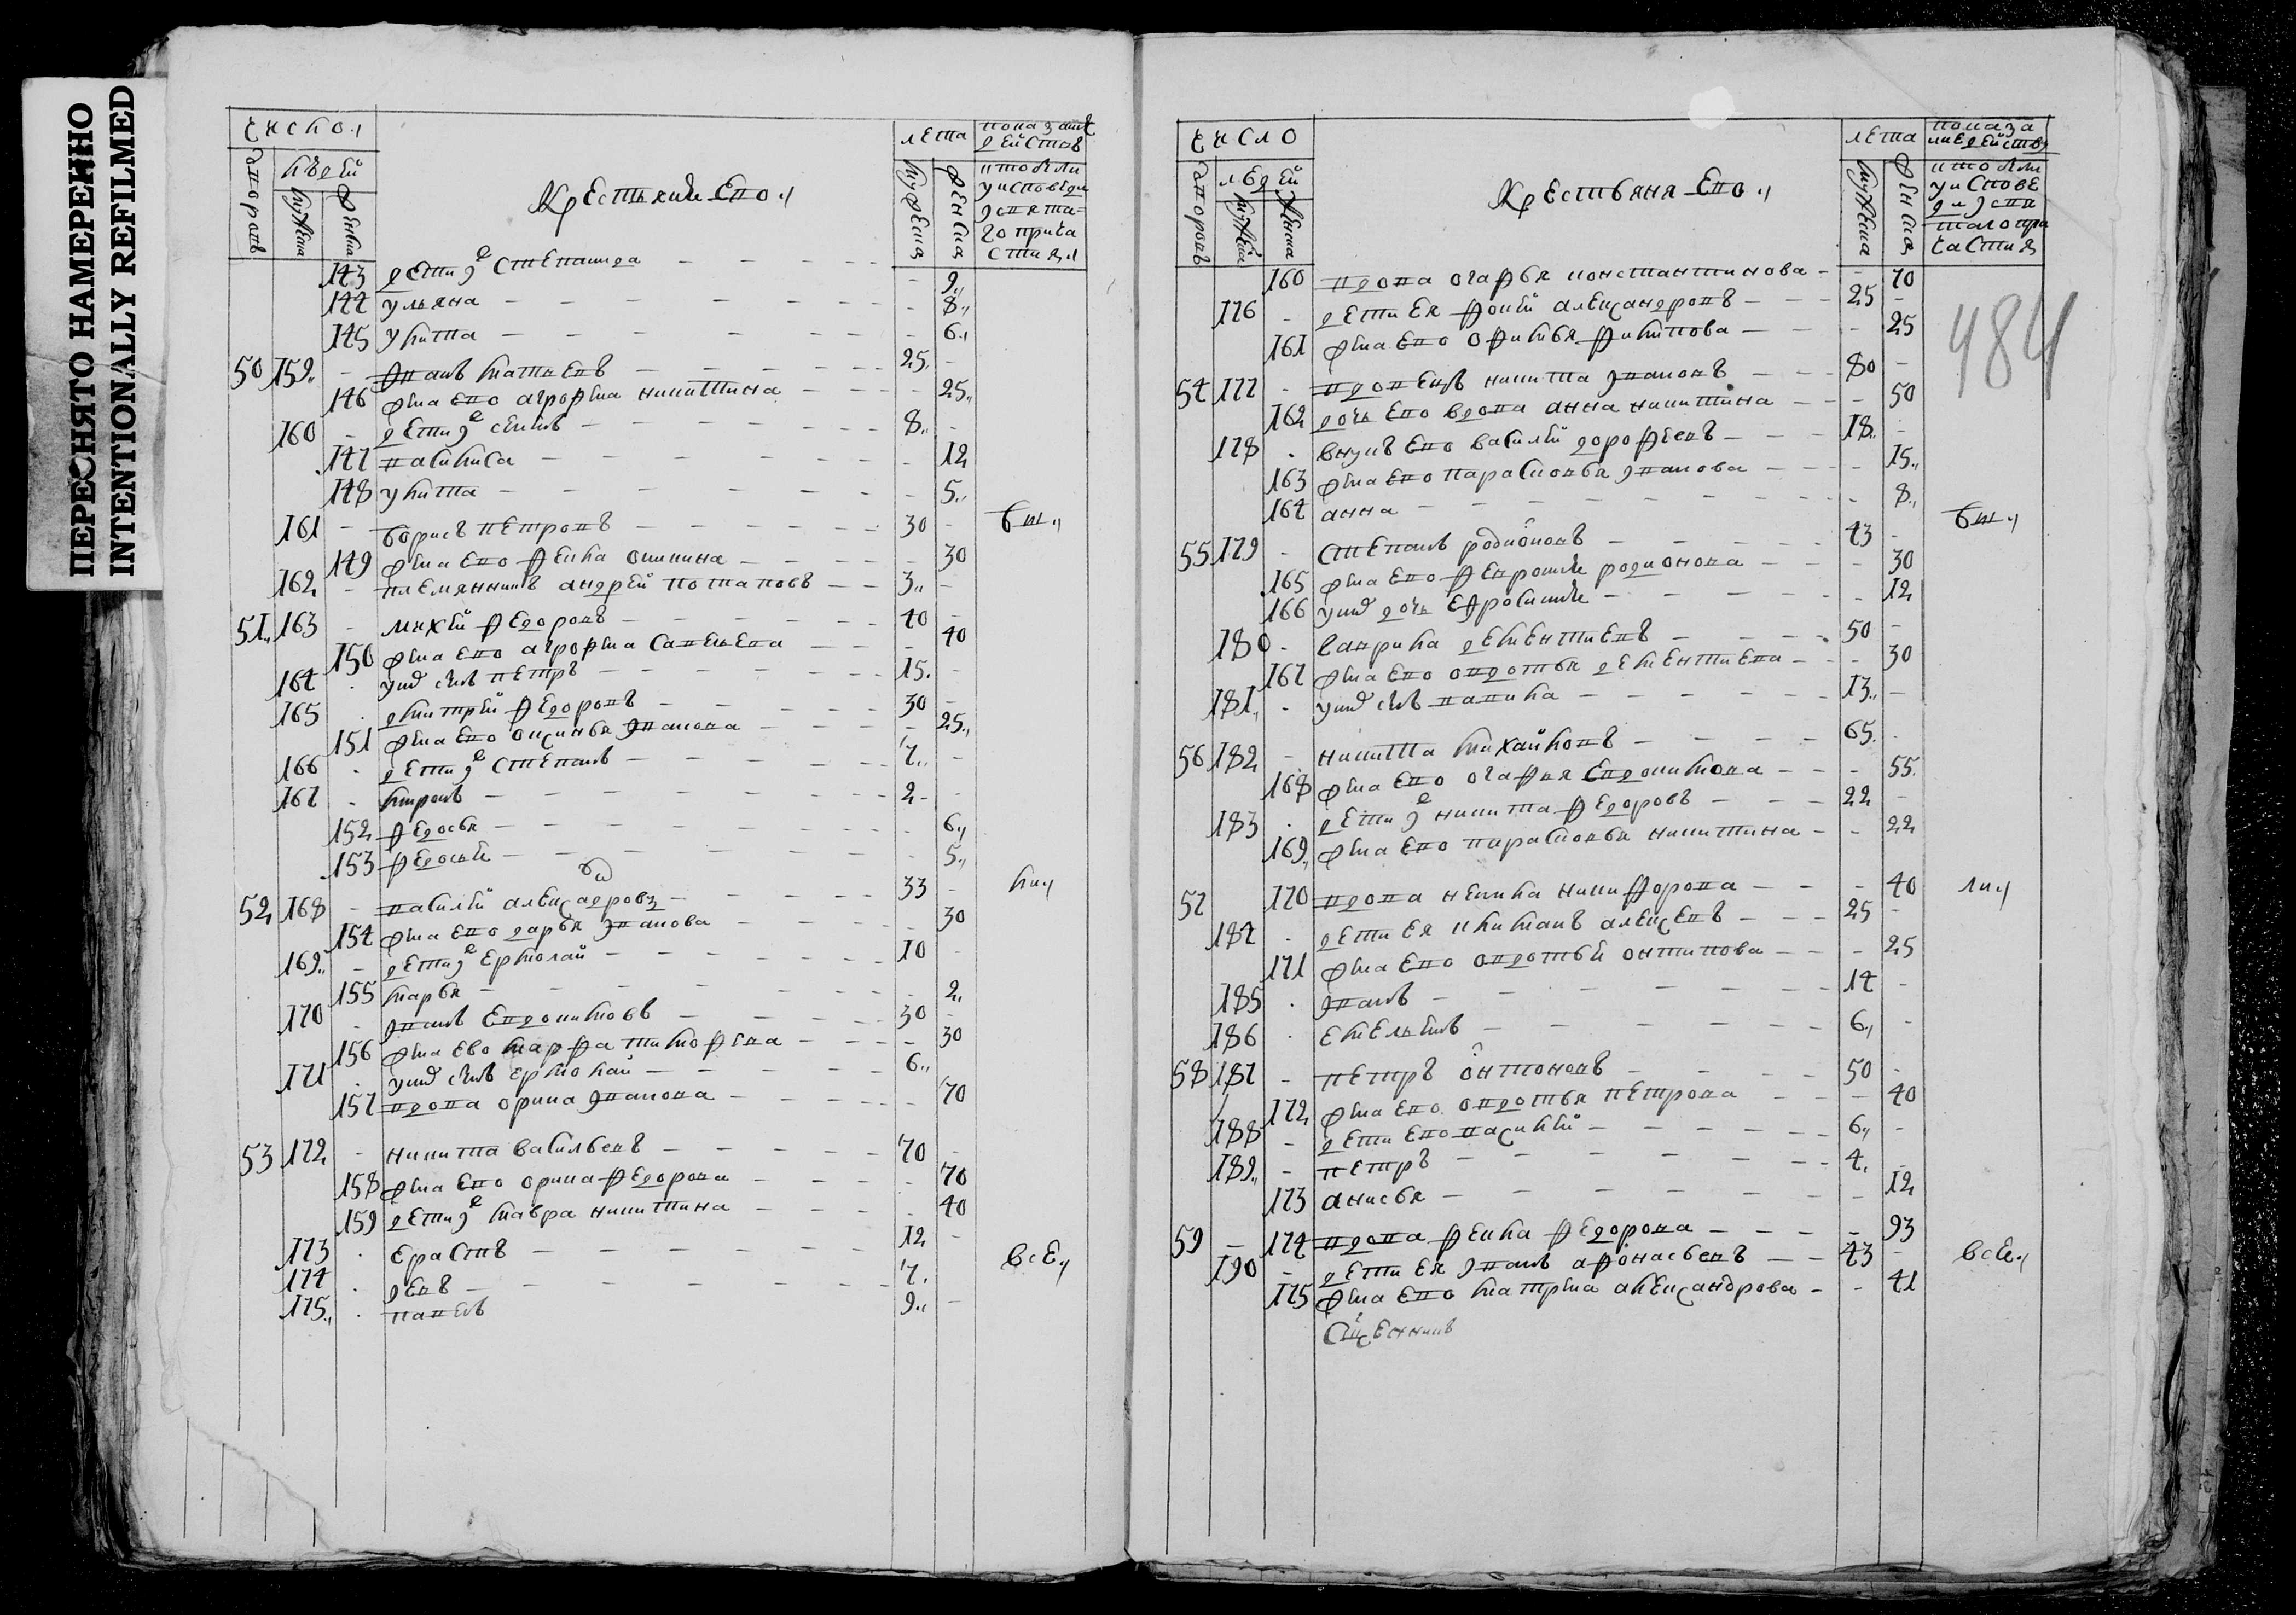 ПЕРЕСНЯТО НАМЕРЕННО
INTENTIONALLY REFILMED
число
дворовъ
людей
мужеска
женска
Крестьяне ево
лета
мужеска
женска
показание действ
кто были
у исповеди
и святаго прича
стия
143 дети ево Степанида 9
144 ульяна 8
145 улита 6
50 159 иванъ матвеевъ 25
146 жена ево агрофена никитина 25
160 дети ево 8
147 василиса 12
148 улита 5
161 борисъ петровъ 30 бы
149 жена ево фекла 30
162 племянникъ андрей потаповъ 3
51 163 михей федоровъ 40
150 жена ево агрофена савельева 40
164 у них сынъ петръ 15
165 дмитрей федоровъ 30
151 жена ево аксинья иванова 25
166 дети ево степанъ 7
167 миронъ 2
152 федосья 6
153 федосья 5
52 168 василей александровъ 33 ли
154 жена ево дарья иванова 30
169 дети ево ермолай 10
155 марья 2
170 иванъ евдокимовъ 30
156 жена ево марфа тимофеева 30
171 у них сынъ ермолай 6
157 вдова орина иванова 70
53 172 никита васильевъ 70
158 жена ево орина федорова 70
159 дети ево мавра никитина 40
173 ерастъ 12 все
174 левъ 7
175 павелъ 9
число
дворовъ
людей
мужеска
женска
Крестьяня ево
лета
мужеска
женска
показа
ние действ
кто были
у испове
ди и свя
таго при
частия
484
160 вдова огафья константинова 70
176 дети ея фокей александровъ 25
161 жена ево офимья филипова 25
54 177 вдовецъ никита ивановъ 80
162 дочь ево вдова анна никитина 50
178 внукъ ево василей дорофеевъ 18
163 жена ево парасковья иванова 15
164 анна 8
55 179 степанъ родионовъ 43 бы
165 жена ево февронья родионова 30
166 у них дочь ефросинья 12
180 гаврила дементиевъ 50
167 жена ево овдотья дементиева 30
181 у них сынъ данила 13
56 182 никита михайловъ 65
168 жена ево огафья евдокимова 55
183 дети ево никита федоровъ 22
169 жена ево парасковья никитина 22
57 170 вдова некила никифорова 40 ли
184 дети ея алексеевъ 25
171 жена ево овдотья онтипова 25
185 иванъ 14
186 емельянъ 6
58 187 петръ онтоновъ 50
172 жена ево овдотья петрова 40
188 дети ево василей 6
189 петръ 4
173 анисья 12
59 174 вдова фекла федорова 93
190 дети ея иванъ афонасьевъ 43 все
175 жена ево матрена александрова 41
Сщенникъ